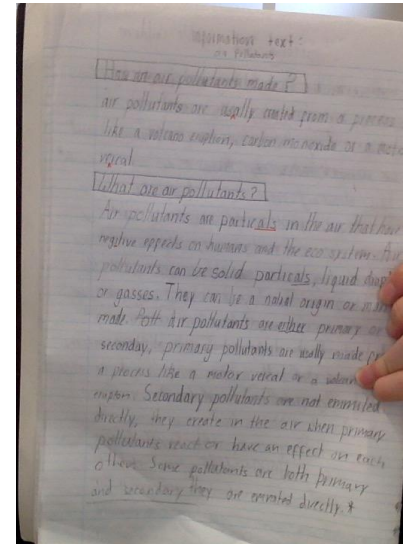 information text:
air pollutants
How are air pollutants made?
air pollutants are usally created from a process
like a volcano eruption, carbon monoxide or a motor
veical
What are air pollutants?
Air pollutants are particals in the air that have
negtive effects on humans and the eco system. Air
pollutants can be solid particals, liquid dropl
or gasses. They can be a natral origin or man
made. Air pollutants are either primary or
seconday, primary pollutants are usally made
a process like a motor veical or a volcan
eruption. Secondary pollutants are not emmited
directly, they create in the air when primary
pollutants react or have an effect on each
other. Some pollutants are both primary
and secondary they are emmited directly. *